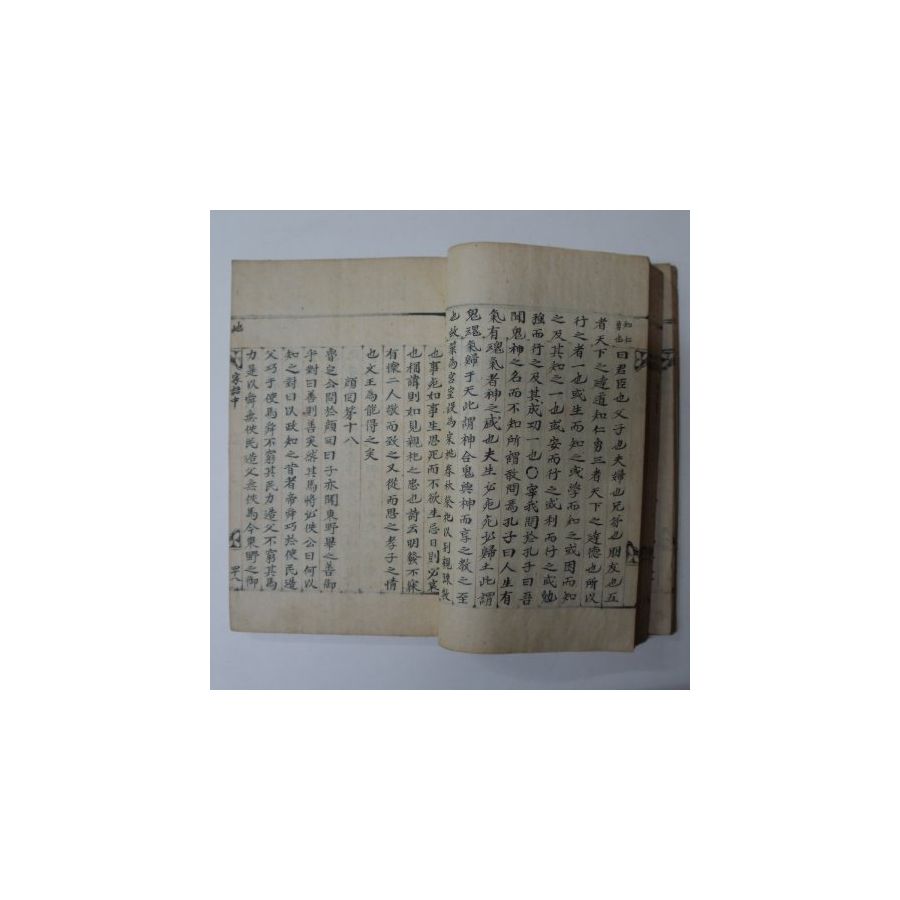 知仁
勇也
曰君臣也父子也夫婦也兄弟也朋友也五
者天下之達道知仁勇三者天下之達德也所以
行之者一也或生而知之或學而知之或困而知
之及其知之一也或安而行之或利而行之或勉
強而行之及其成功一也〇宰我問於孔子曰吾
聞鬼神之名而不知所謂敢問焉孔子曰人生有
氣有魂氣者神之盛也夫生必死死必歸土此謂
鬼魂氣歸于天此謂神合鬼與神而享之教之至
也故築為宮室設為宗祧春秋祭祀以別親踈教
也事死如事生思死而不欲生忌日則必哀
也稱諱則如見親祀之忠也詩云明發不寐
有懷二人敬而致之又從而思之孝子之情
也文王為能得之矣
顏回第十八
魯定公問於顏回曰子亦聞東野畢之善御
乎對曰善則善矣然其馬將必佚公曰何以
知之對曰以政知之昔者帝舜巧於使民造
父巧于使馬舜不窮其民力造父不窮其馬
力是以舜無佚民造父無佚馬今東野之御
地
家語中